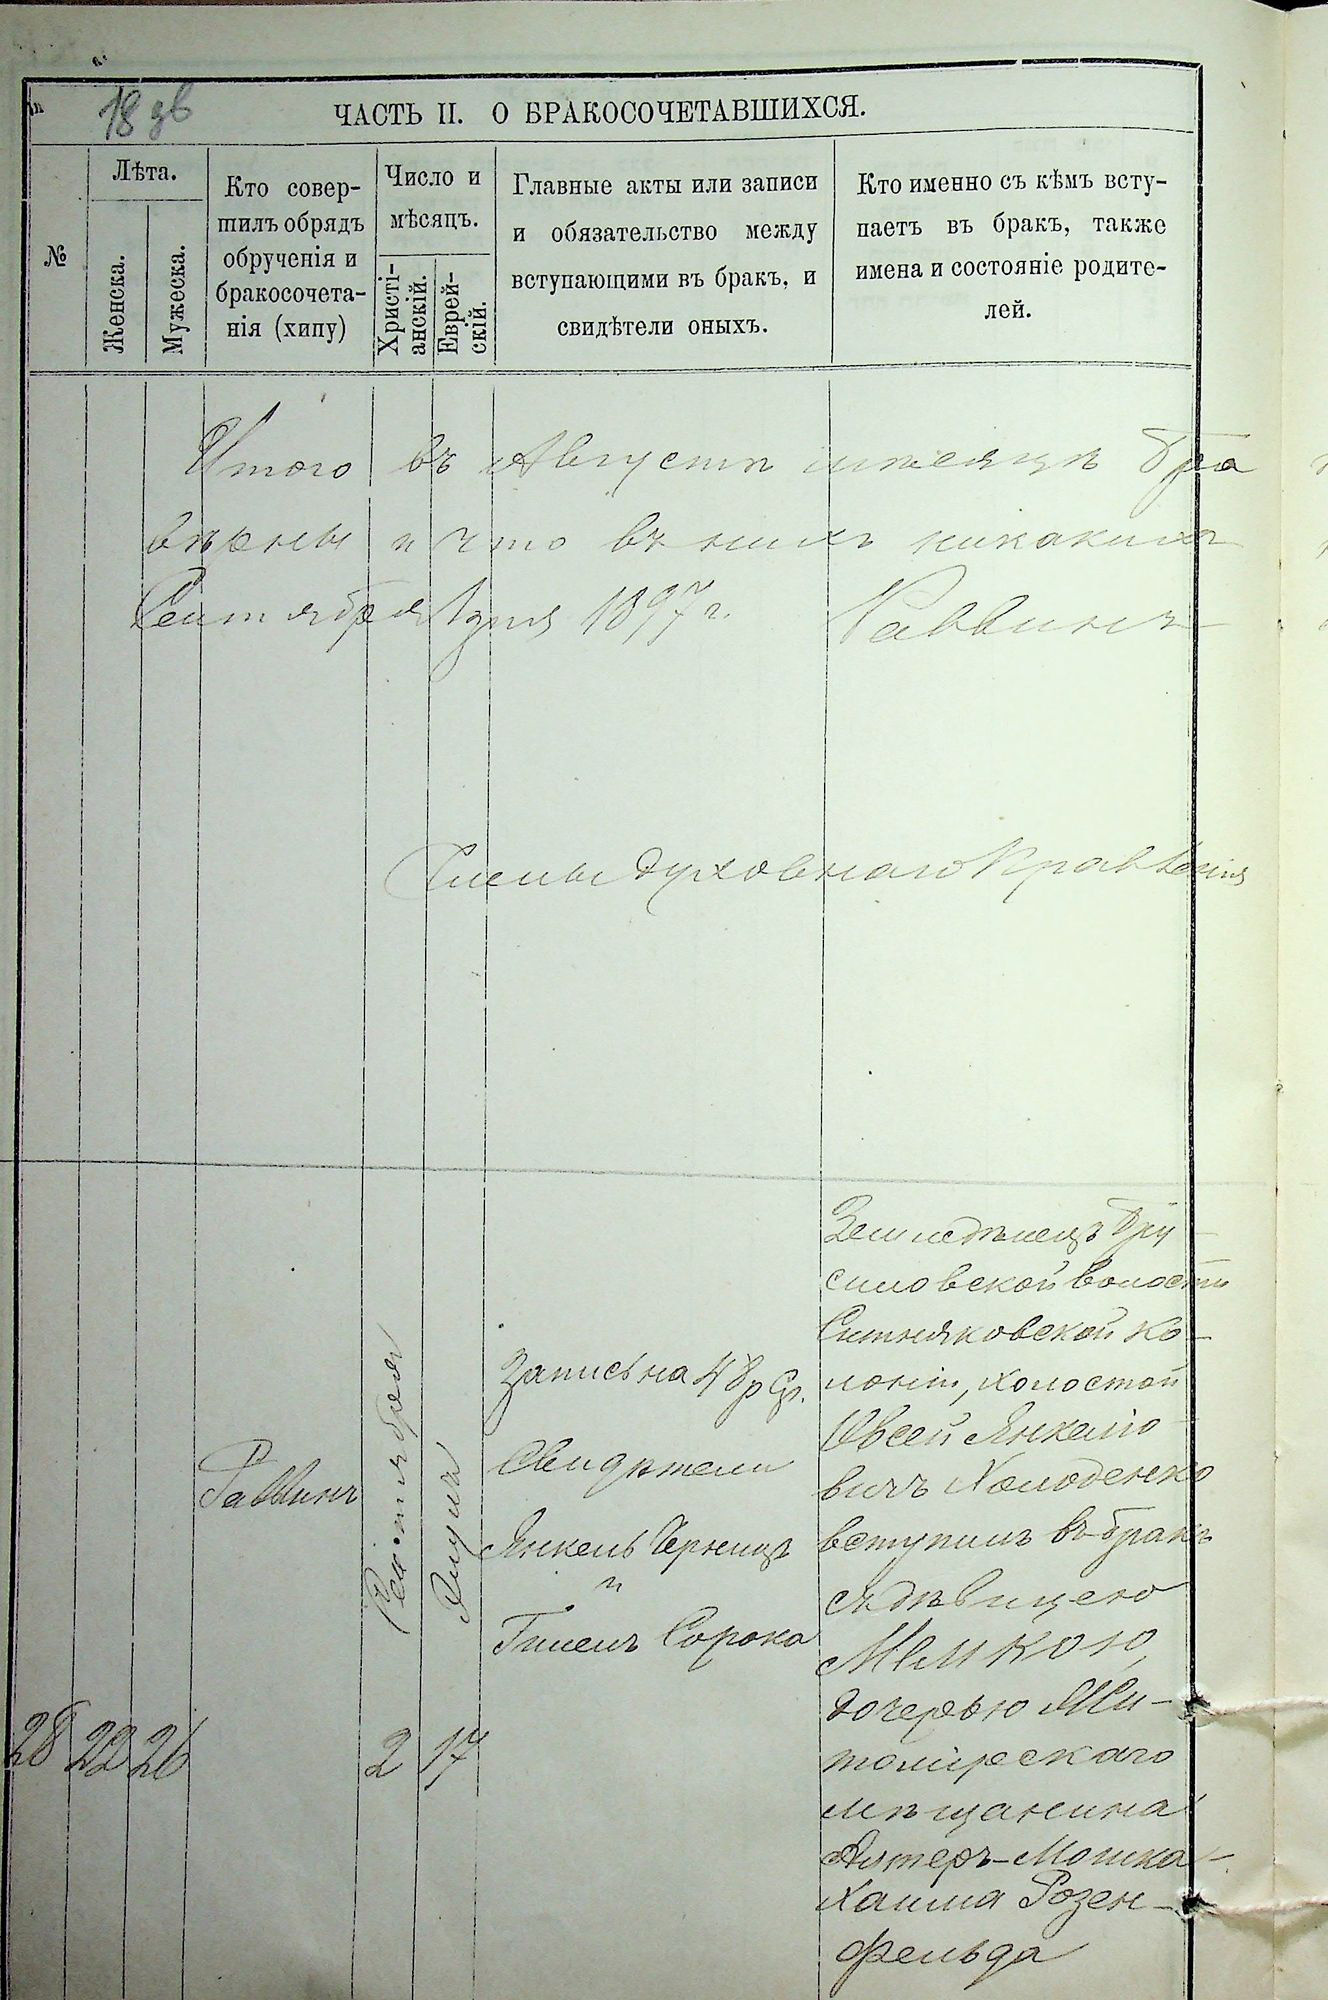 18 дв
ЧАСТЬ II. О БРАКОСОЧЕТАВШИХСЯ.
№
Лѣта.
Женска.
Мужеска.
Кто совер-
шилъ обрядъ
обрученія и
бракосочета-
нія (хипу)
Число и
мѣсяцъ.
Христі-
анскій.
Еврей-
скій.
Главные акты или записи
и обязательство между
вступающими въ бракъ, и
свидѣтели оныхъ.
Кто именно съ кѣмъ всту-
паетъ въ бракъ, также
имена и состояніе родите-
лей.
Итого въ Августѣ мѣсяцѣ бра
вѣрны и что въ нихъ никакихъ
Сентября 1 дня 1897 г. Раввинъ
Члены духовнаго Правленія
28
22
26
Раввинъ
Сентября
2
Элула
17
Запись на 48 р Ср.
Свидѣтели
Янкель Чернецъ
и
Гилель Сорока
Земледѣлецъ Бру
силовской волости
Ситняковской ко-
лоніи, холостой
Овсей Янкелю
вичъ Холоденко
вступилъ въ бракъ
съ дѣвицею
Малкою,
дочерью Жи-
томірскаго
мѣщанина
Алтеръ-Мошка-
Хаима Розен-
фельда